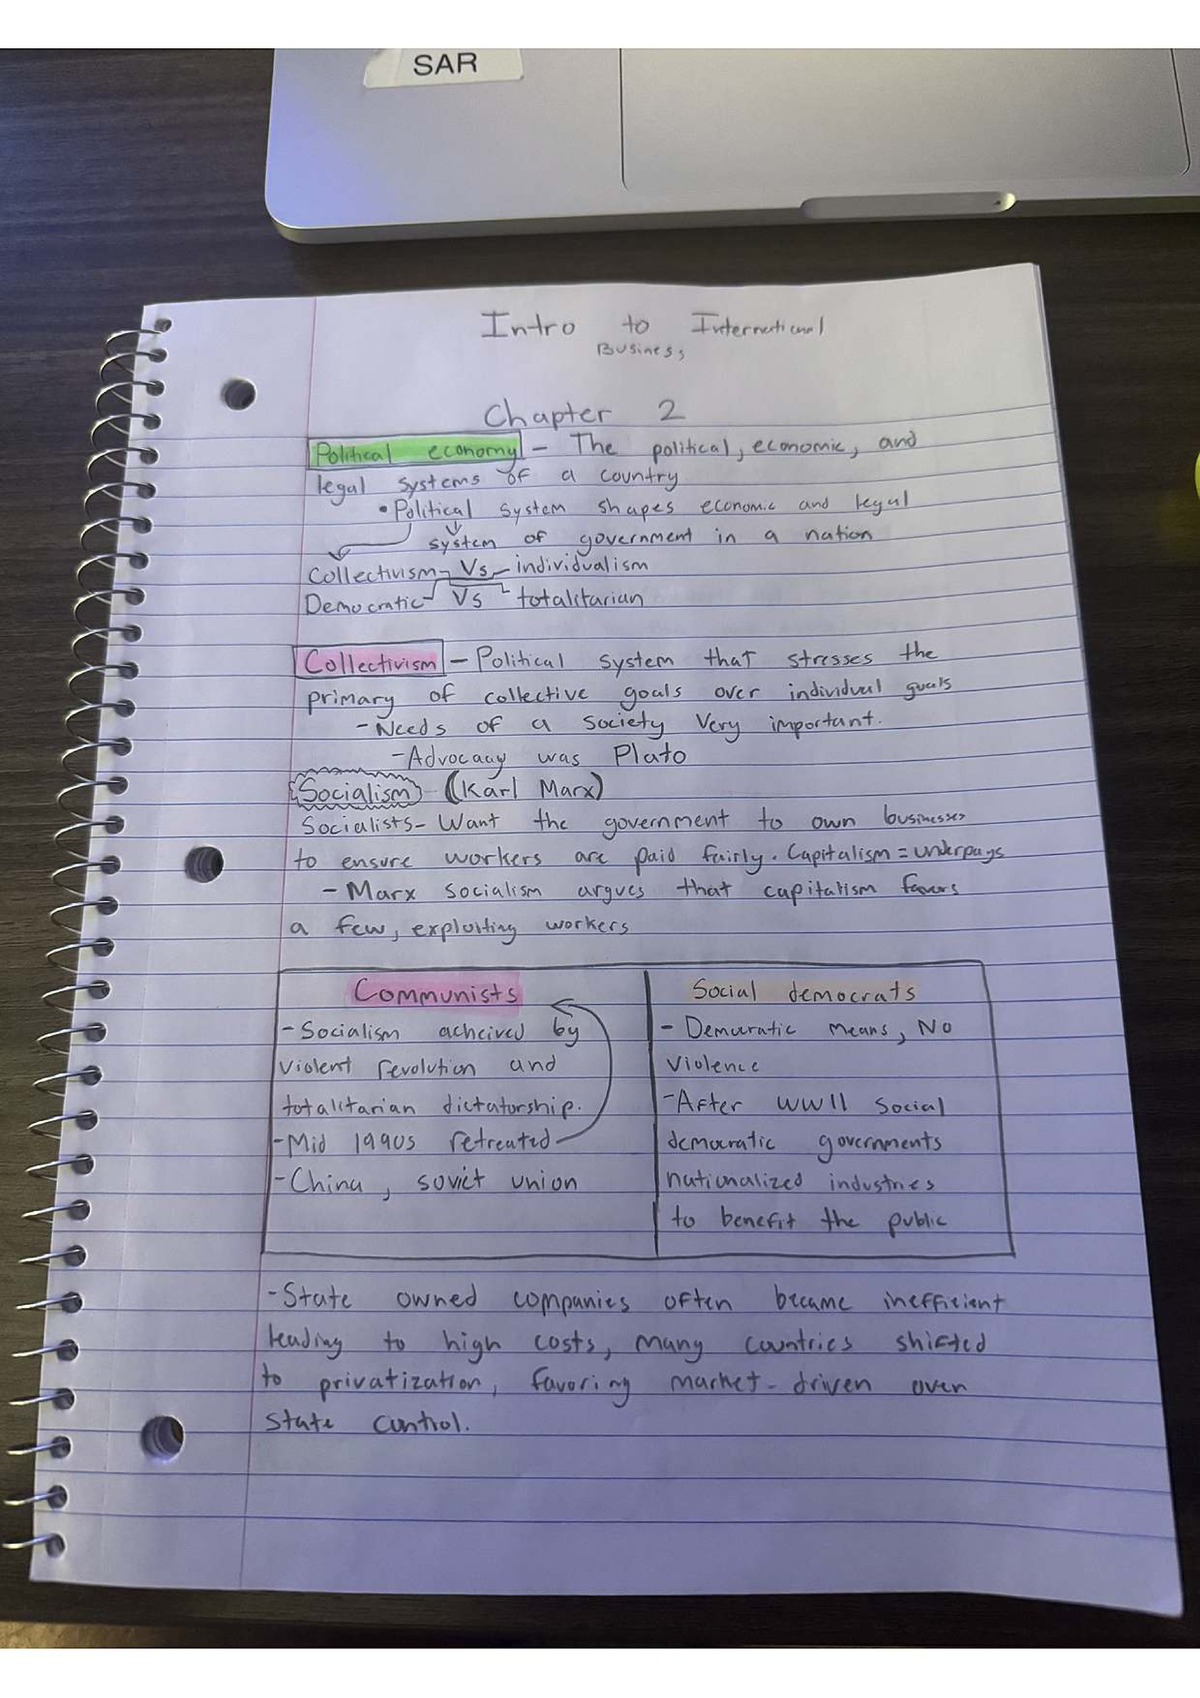 SAR
Intro to International
Business
Chapter 2
Political economy - The political, economic, and
legal systems of a country
• Political system shapes economic and legal
system of government in a nation
Collectivism - Vs - individualism
Democratic Vs totalitarian
Collectivism - Political system that stresses the
primary of collective goals over individual goals
- Needs of a society very important.
- Advocacy was Plato
Socialism (Karl Marx)
Socialists - Want the government to own businesses
to ensure workers are paid fairly. Capitalism = underpays
- Marx socialism argues that capitalism favors
a few, exploiting workers
Communists
- Socialism acheived by
violent revolution and
totalitarian dictatorship.
- Mid 1990s retreated
- China, soviet union
Social democrats
- Democratic means, No
violence
- After WWII social
democratic governments
nationalized industries
to benefit the public
- State owned companies often became inefficient
leading to high costs, many countries shifted
to privatization, favoring market-driven over
state control.